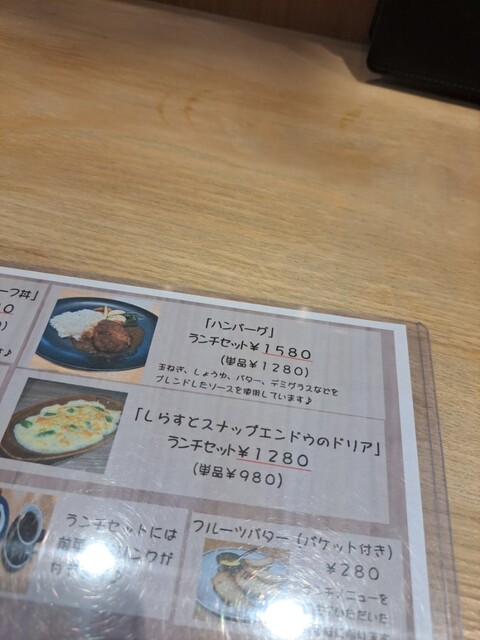 ーフ丼」
「ハンバーグ」
ランチセット¥1580
(単品¥1280)
玉ねぎ、しょうゆ、バター、デミグラスなどを
ブレンドしたソースを使用しています♪
「しらすとスナップエンドウのドリア」
ランチセット¥1280
(単品¥980)
ランチセットには
フルーツバター(バケット付き)
¥280
ランチメニューを